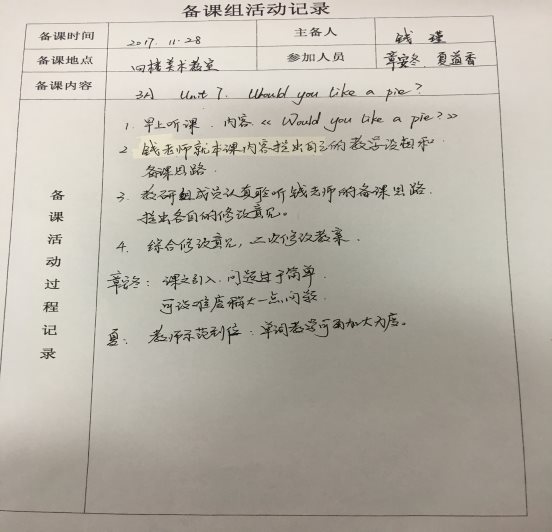 备课组活动记录
备课时间 2017.11.28 主备人 钱瑾
备课地点 四楼美术教室 参加人员 章安冬 夏益香
备课内容 3A Unit 7. Would you like a pie?
备课活动过程记录
1. 早上听课. 内容《Would you like a pie?》
2 钱老师就本课内容提出自己的教学设想和
备课思路.
3. 教研组成员认真聆听钱老师的备课思路.
提出各自的修改意见。
4. 综合修改意见, 二次修改教案.
章安冬: 课文引入. 问题过于简单.
可设难度稍大一点问题.
夏: 教师示范到位. 单词教学可再加大力度。